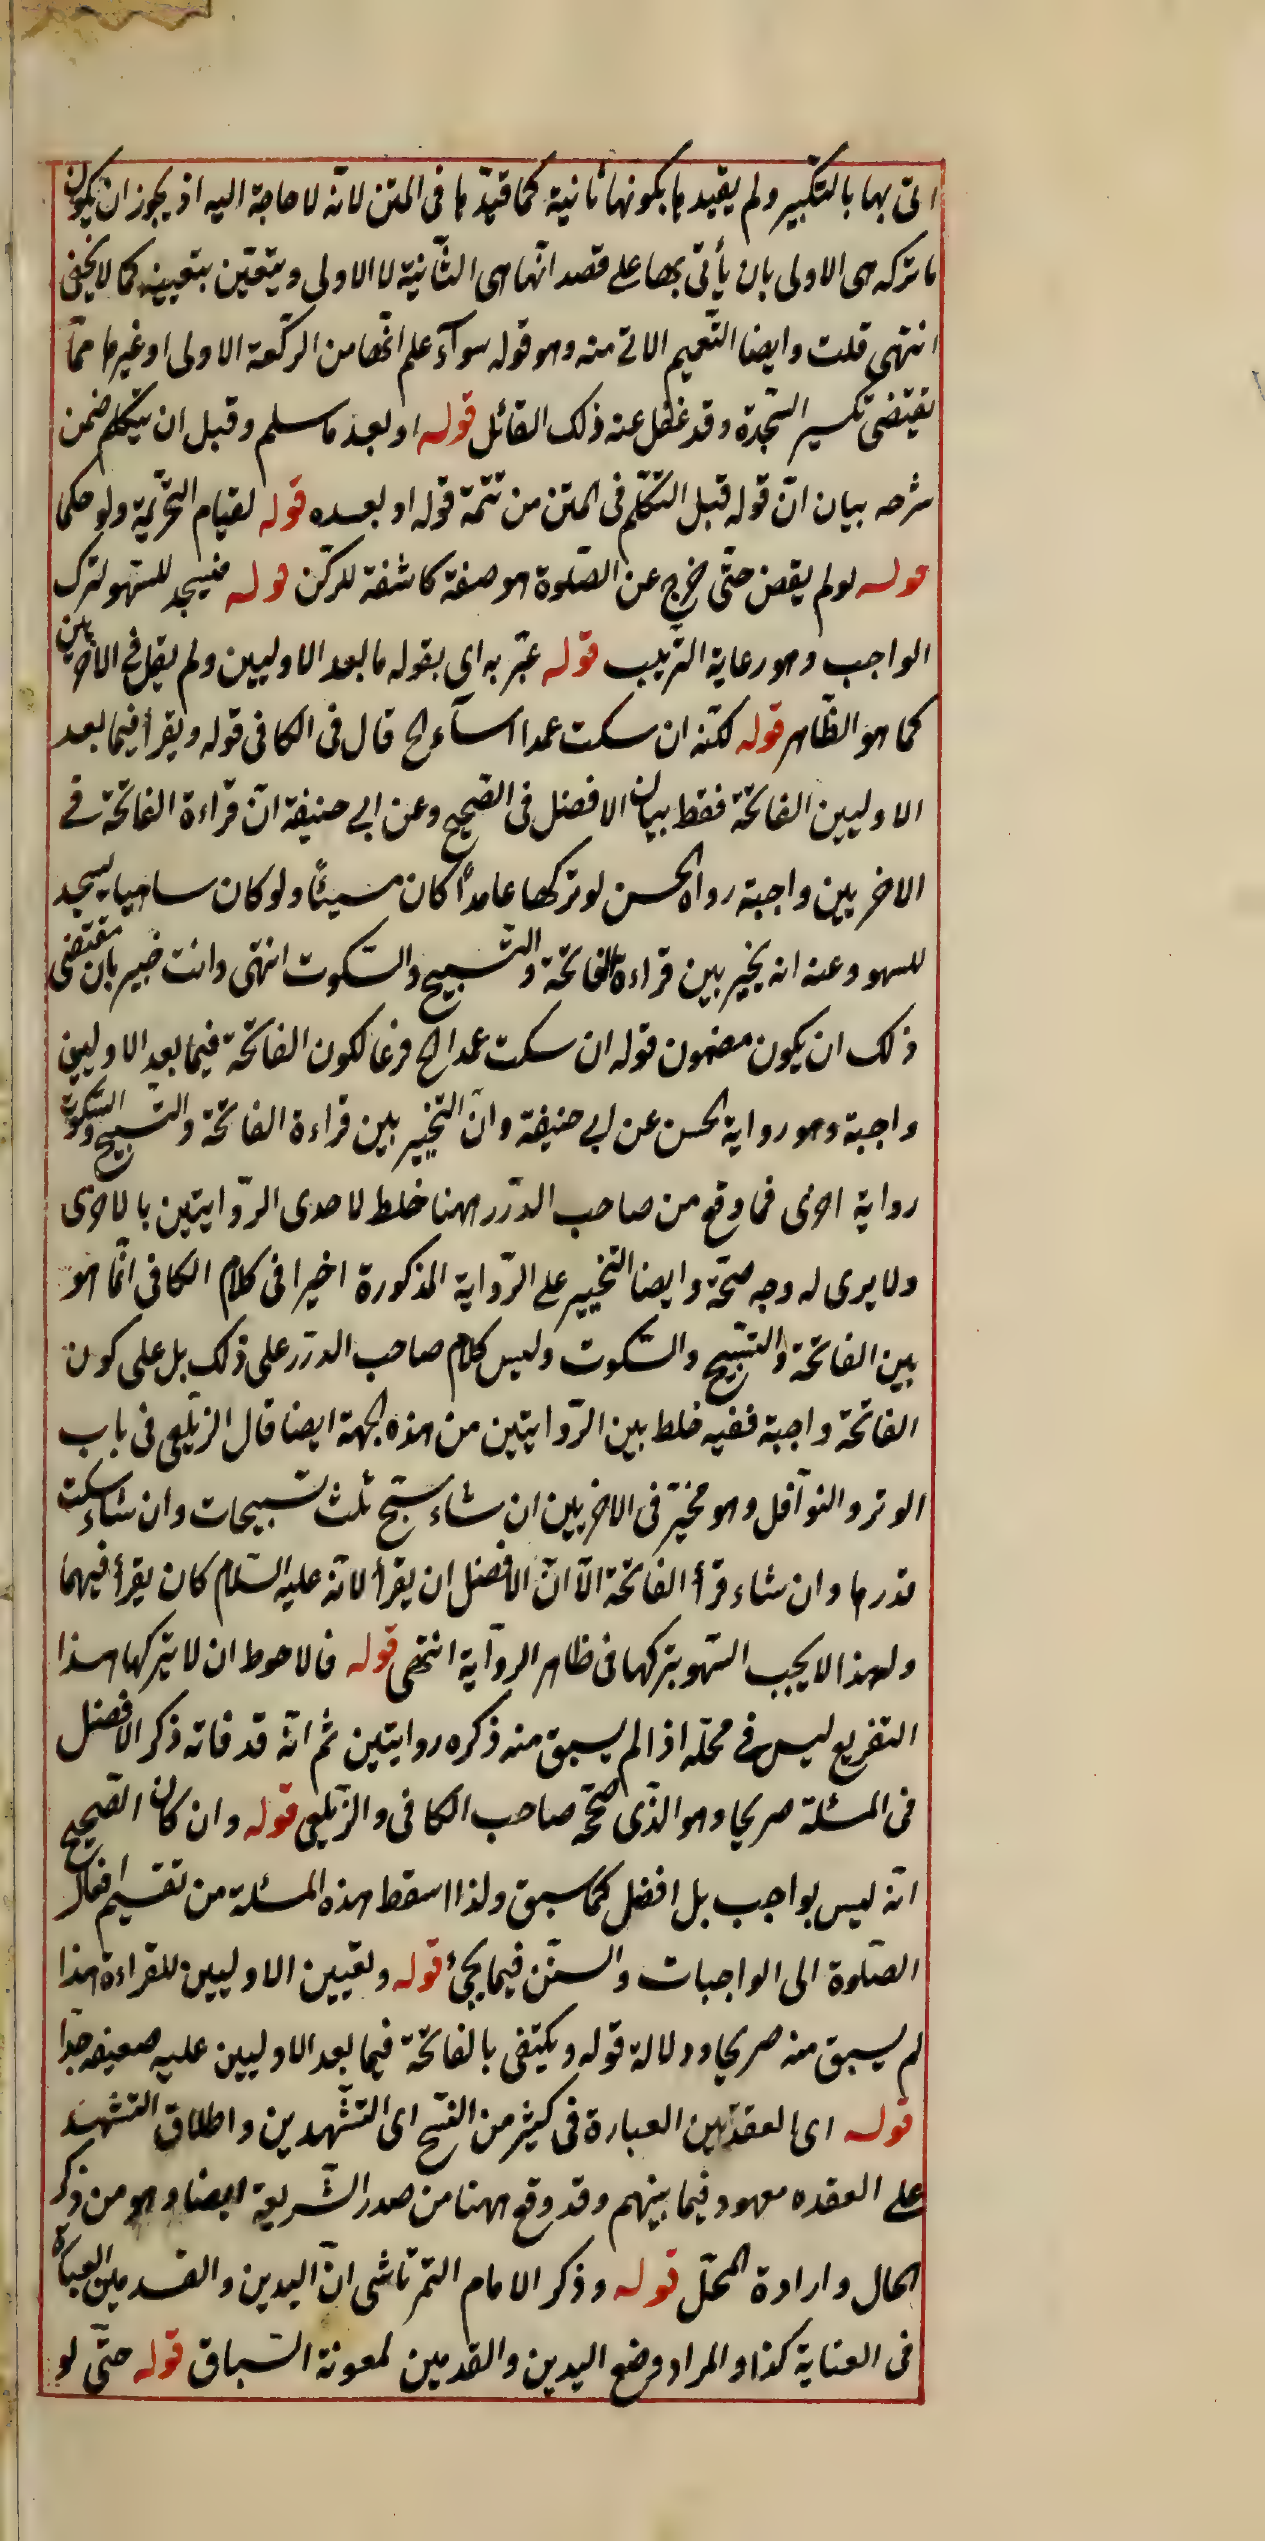 اتى بها بالتكبير ولم يقيدها بكونها ثانية كما قيدها فى المتن لانه لا حاجة اليه اذ يجوز ان يكون
ما تركه هى الاولى بان يأتى بها على قصد انها هى الثانية لا الاولى ويتعين بتعيينه كما لا يخفى
انتهى قلت وايضا التعميم الاتى منه وهو قوله سوآء علم انها من الركعة الاولى او غيرها مما
يقتضى تكسير السجدة وقد غفل عنه ذلك القائل قوله او بعد ما سلم وقبل ان يتكلم ضمن
شرحه بيان ان قوله قبل التكلم فى المتن من تتمة قوله او بعده قوله لقيام التحريمة ولو حكما
قوله لو لم يقض حتى خرج عن الصلوة هو صفة كاشفة للركن قوله فيسجد للسهو لترك
الواجب وهو رعاية الترتيب قوله عبر به اى بقوله ما بعد الاوليين ولم يقل فى الاخريين
كما هو الظاهر قوله لكنه ان سكت عمدا اسآء الح قال فى الكافى قوله ويقرأ فيما بعد
الاوليين الفاتحة فقط بيان الافضل فى الصحيح وعن ابى حنيفة ان قراءة الفاتحة فى
الاخريين واجبة رواه الحسن لو تركها عامدا كان مسيئا ولو كان ساهيا يسجد
للسهو وعنه انه يخير بين قراءة الفاتحة والتسبيح والسكوت انتهى وانت خبير بان مقتضى
ذلك ان يكون مضمون قوله ان سكت عمدا الح فرعا لكون الفاتحة فيما بعد الاوليين
واجبة وهو رواية الحسن عن ابى حنيفة وان التخيير بين قراءة الفاتحة والتسبيح والسكوت
رواية اخرى فما وقع من صاحب الدرر ههنا خلط لاحدى الروايتين بالاخرى
ولا يرى له وجه صحة وايضا التخيير على الرواية المذكورة اخيرا فى كلام الكافى انما هو
بين الفاتحة والتسبيح والسكوت وليس كلام صاحب الدرر على ذلك بل على كون
الفاتحة واجبة ففيه خلط بين الروايتين من هذه الجهة ايضا قال الزيلعى فى باب
الوتر والنوآفل وهو مخير فى الاخريين ان شاء سبح ثلث تسبيحات وان شاء سكت
قدرها وان شاء قرأ الفاتحة الا ان الافضل ان يقرأ لانه عليه السلام كان يقرأ فيهما
ولهذا لا يجب السهو بتركها فى ظاهر الرواية انتهى قوله فالاحوط ان لا يتركها هذا
التفريع ليس فى محله اذا لم يسبق منه ذكره روايتين ثم انه قد فاته ذكر الافضل
فى المسئلة صريحا وهو الذى صححه صاحب الكافى والزيلعى قوله وان كان الصحيح
انه ليس بواجب بل افضل كما سبق ولذا اسقط هذه المسئلة من تقسيم افعال
الصلوة الى الواجبات والسنن فيما يجئ قوله وتعيين الاوليين للقراءة هذا
لم يسبق منه صريحا ودلالة قوله ويكتفى بالفاتحة فيما بعد الاوليين عليه ضعيف جدا
قوله اى العقدتين العبارة فى كثير من النسخ اى التشهدين واطلاق التشهد
على العقده معهود فيما بينهم وقد وقع ههنا من صدر الشريعة ايضا وهو من ذكر
الحال وارادة المحل قوله وذكر الامام التمرتاشى ان اليدين والقدمين العبارة
فى العناية كذا والمراد وضع اليدين والقدمين لمعونة السباق قوله حتى لو